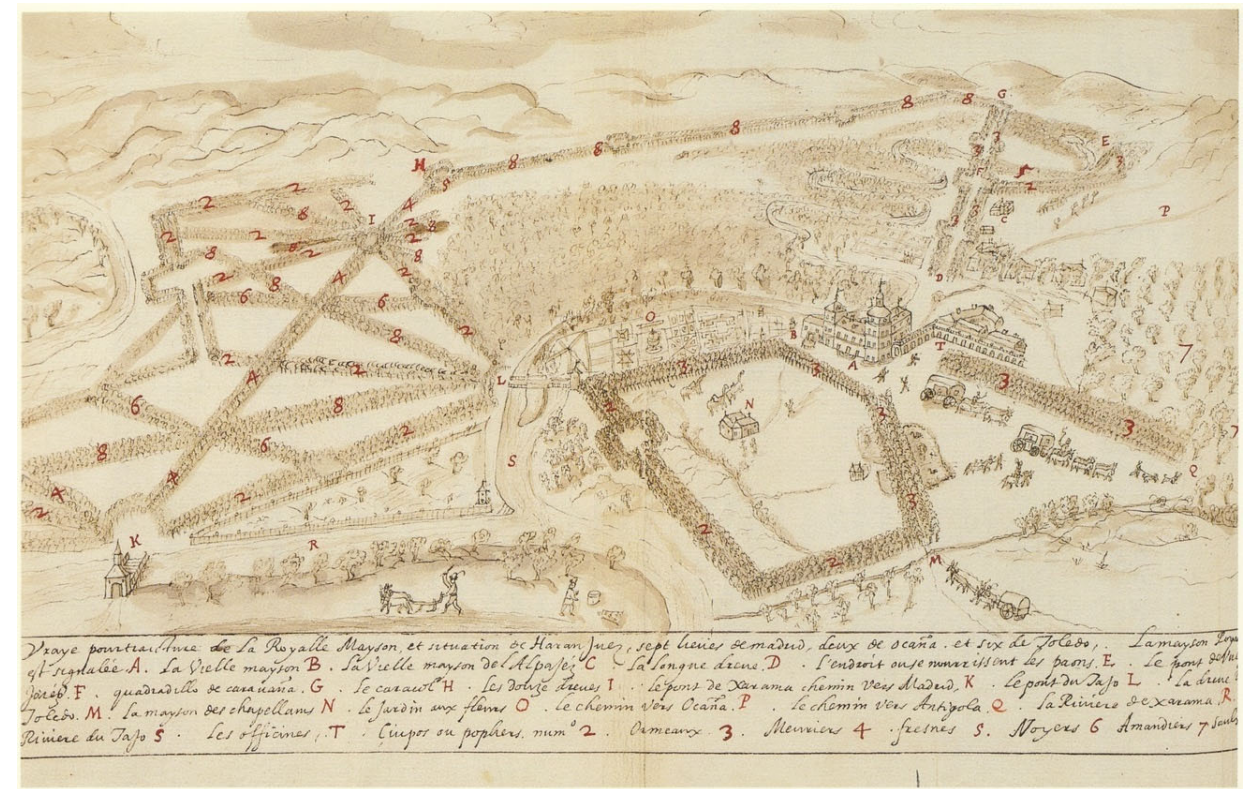 Vraye pourtraicture de La Royalle Mayson, et situation de Haran Juez, sept lieues de madrid, deux de ocaña. et six de Toledo. La mayson
est signalée A. La Vielle mayson B. La Vielle mayson de l'Alpajes C La longue dreue, D L'endroit ou se nourrissent les paons. E. Le pont
F. quadradillo de carauaña. G. Le caracol H. Les douze dreues I. le pont de Xarama chemin vers Madrid, K. le pont du Tajo L. La dreue
Toledo. M. La mayson des chapellains N. le Jardin aux fleurs O. le chemin vers Ocaña. P. le chemin vers Antigola Q. La Riviere de Xarama. R
Riviere du Tajo S. Les officines, T. ou popliers. num° 2. Ormeaux 3. Meuriers 4. fresnes 5. Noyers 6 Amandiers 7